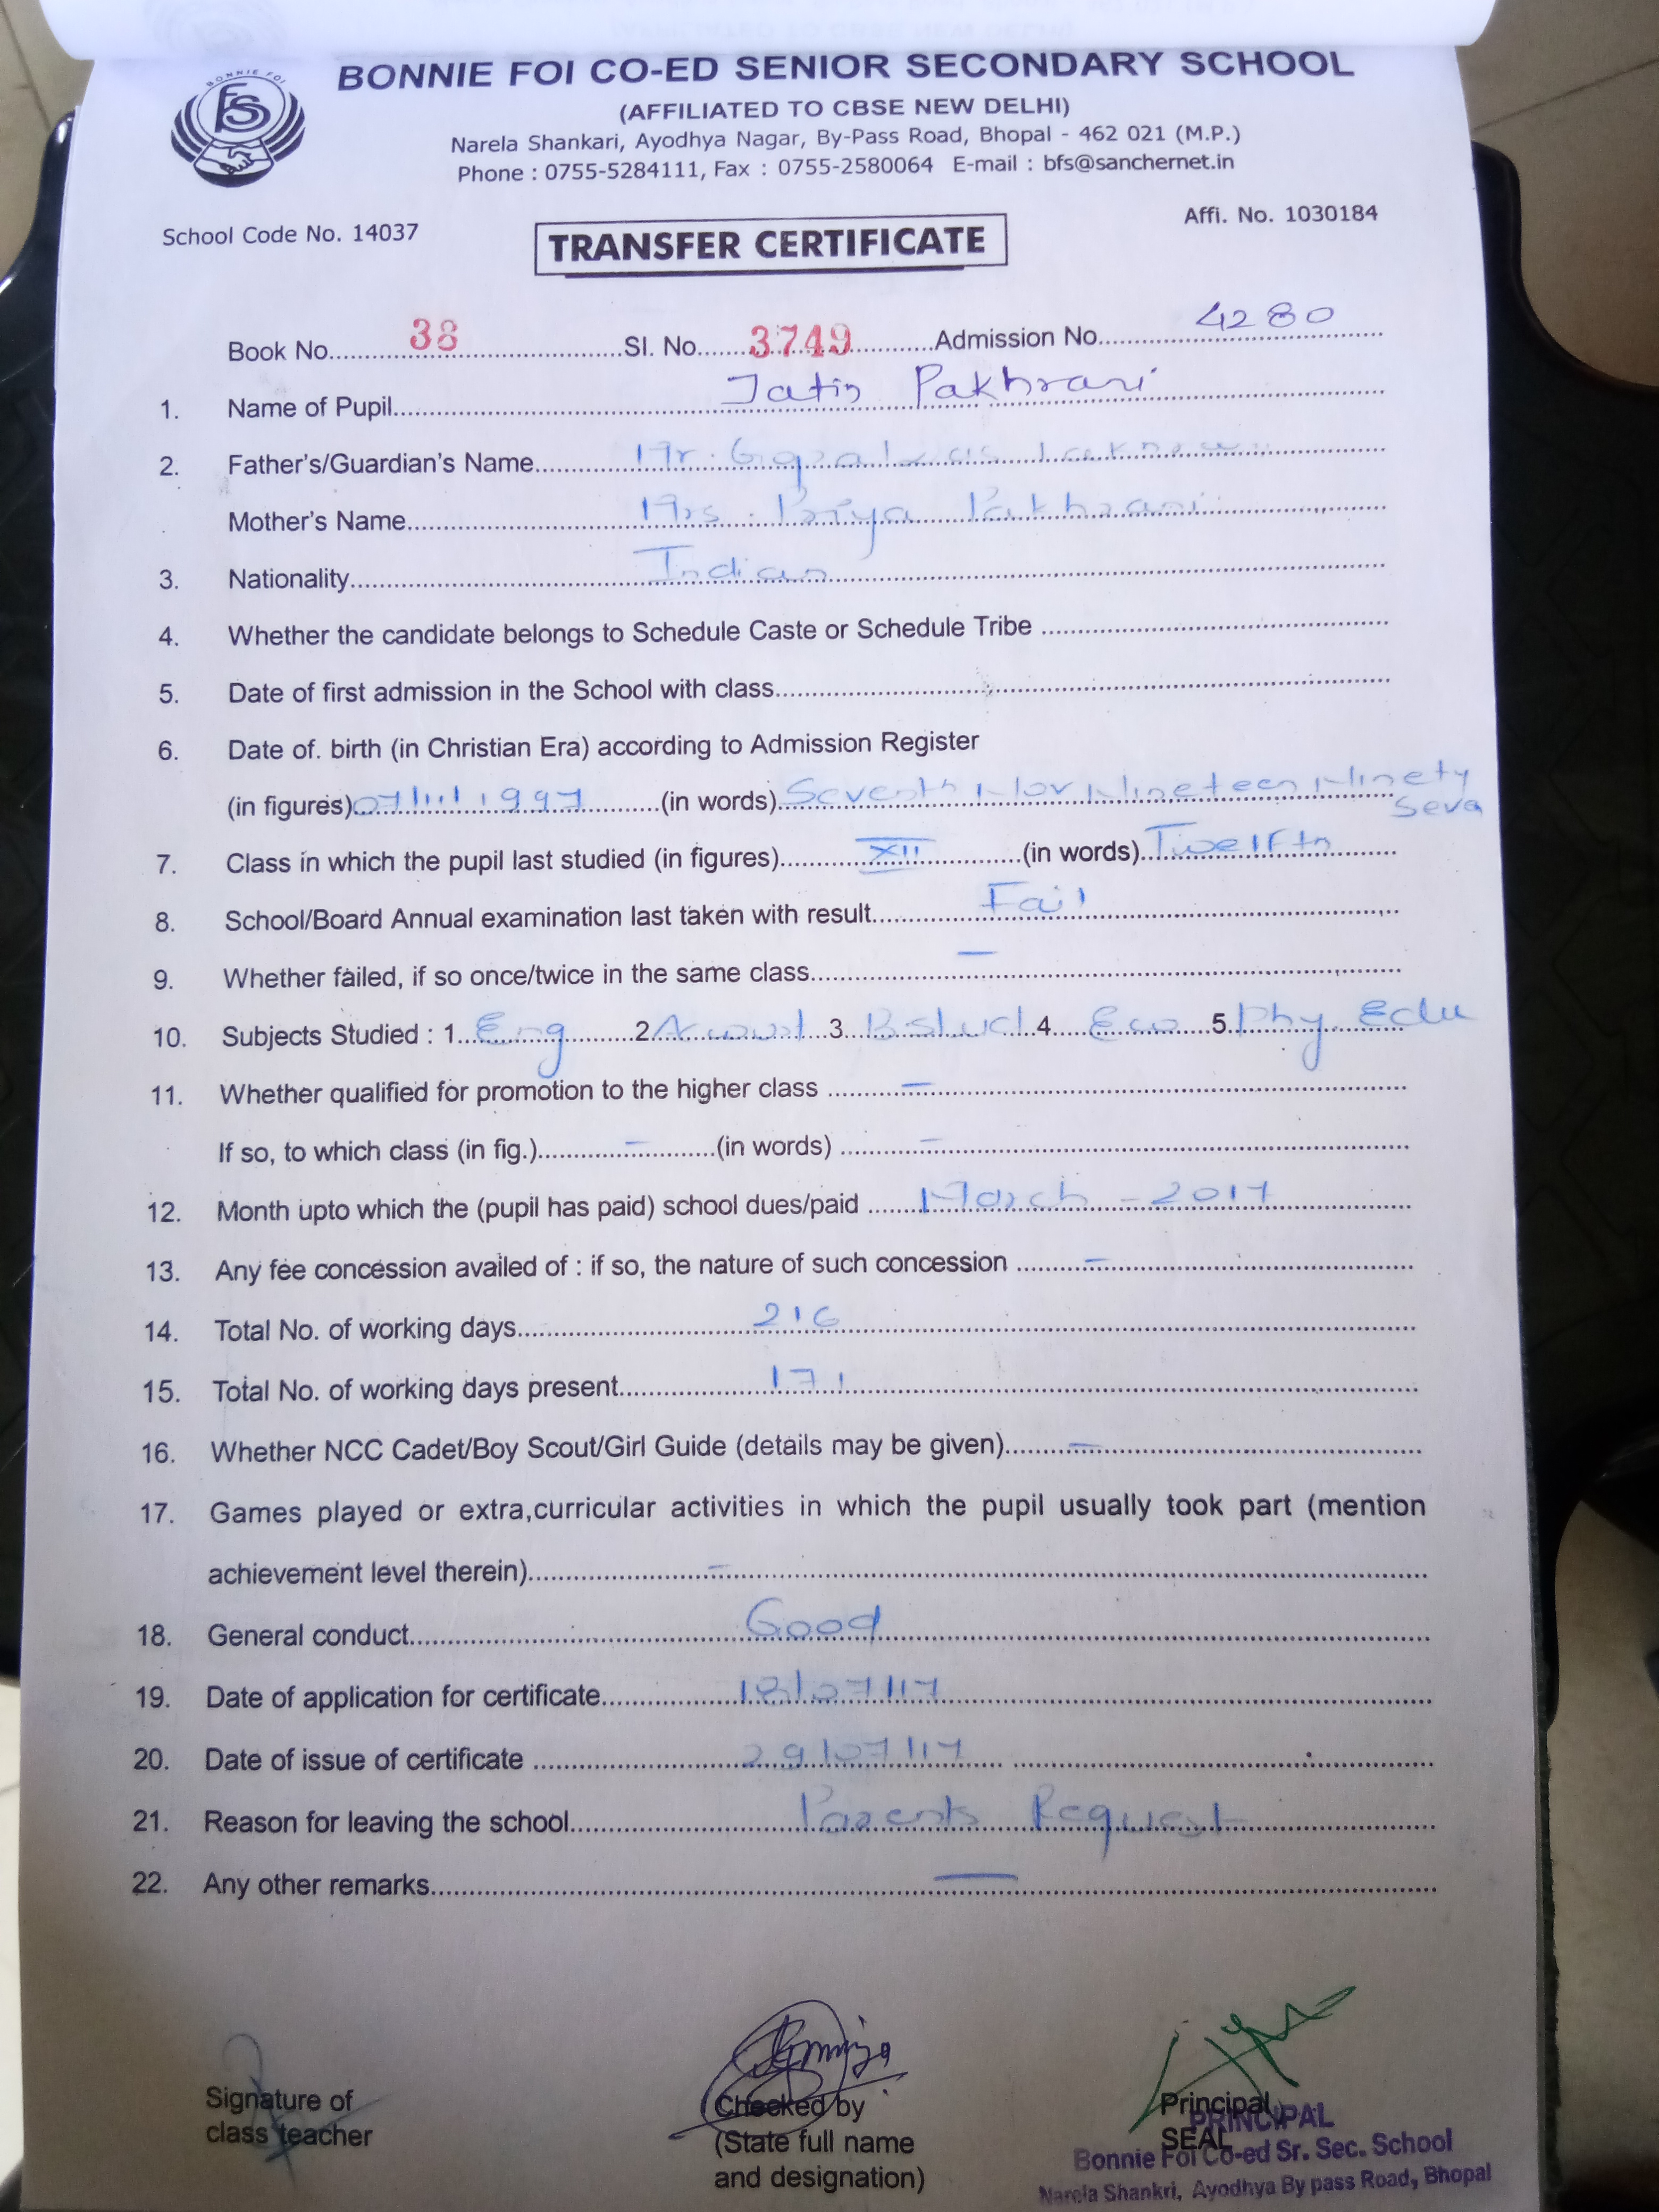 BONNIE FOI
FS
BONNIE FOI CO-ED SENIOR SECONDARY SCHOOL
(AFFILIATED TO CBSE NEW DELHI)
Narela Shankari, Ayodhya Nagar, By-Pass Road, Bhopal - 462 021 (M.P.)
Phone : 0755-5284111, Fax : 0755-2580064 E-mail : bfs@sanchernet.in
School Code No. 14037
Affi. No. 1030184
TRANSFER CERTIFICATE
Book No. 38 Sl. No. 3749 Admission No. 4280
1. Name of Pupil Jatin Pakhrani
2. Father's/Guardian's Name Mr.
Mother's Name Mrs. Priya Pakhrani
3. Nationality Indian
4. Whether the candidate belongs to Schedule Caste or Schedule Tribe
5. Date of first admission in the School with class
6. Date of. birth (in Christian Era) according to Admission Register
(in figures) 07/11/1997 (in words) Seventh Nov Nineteen Ninety
Seva
7. Class in which the pupil last studied (in figures) XII (in words) Twelfth
8. School/Board Annual examination last taken with result Fail
9. Whether failed, if so once/twice in the same class —
10. Subjects Studied : 1. Eng 2 Account 3 B.stud 4 Eco 5. Phy. Edu
11. Whether qualified for promotion to the higher class —
If so, to which class (in fig.) — (in words) —
12. Month upto which the (pupil has paid) school dues/paid March - 2017
13. Any fee concession availed of : if so, the nature of such concession —
14. Total No. of working days 216
15. Total No. of working days present 171
16. Whether NCC Cadet/Boy Scout/Girl Guide (details may be given) —
17. Games played or extra,curricular activities in which the pupil usually took part (mention
achievement level therein) —
18. General conduct Good
19. Date of application for certificate 18/07/17
20. Date of issue of certificate 29/07/17
21. Reason for leaving the school Parents Request
22. Any other remarks —
Signature of
class teacher
Checked by
(State full name
and designation)
Principal
SEAL
PRINCIPAL
Bonnie Foi Co-ed Sr. Sec. School
Narela Shankri, Ayodhya By pass Road, Bhopal